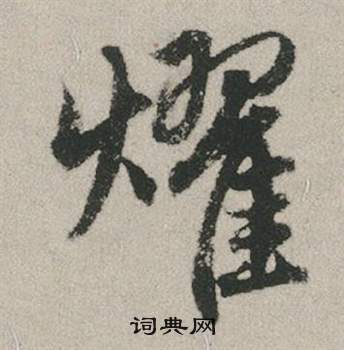 燿
词典网